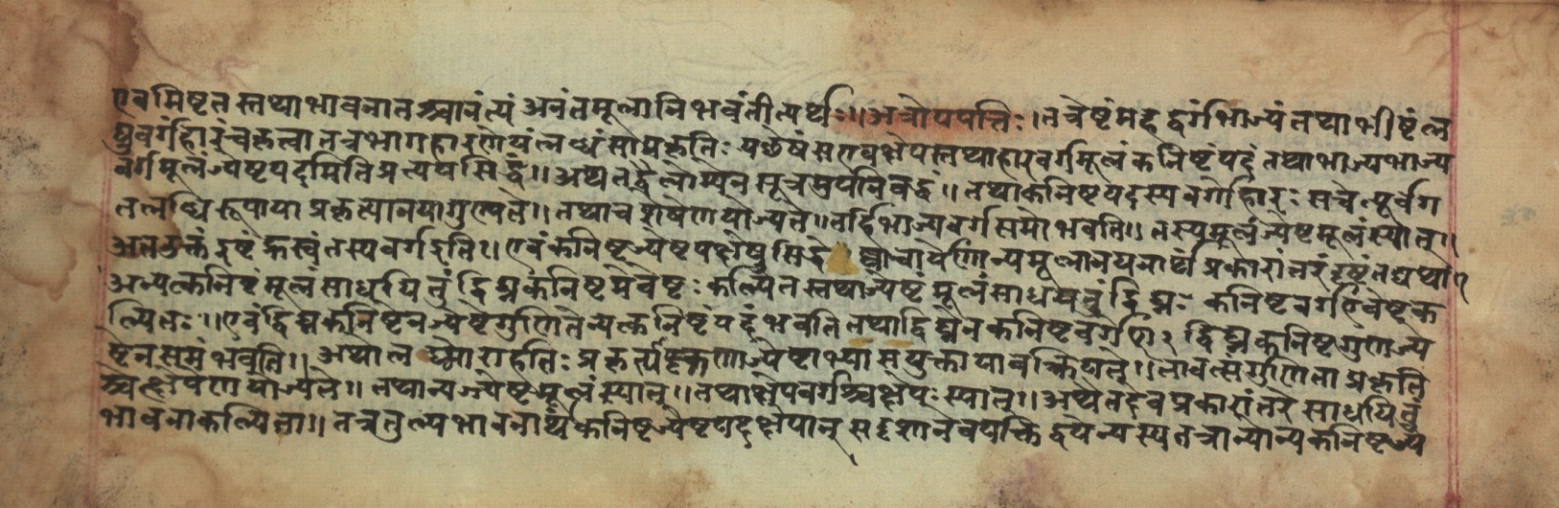 एवमिष्टत स्तथाभावनातश्चानंत्यं अनंतमूलानि भवंतीत्यर्थः ॥ अत्रोपपत्तिः । तत्रेष्टं महद्वर्गभाज्यं तथाभीष्टं ल
घुवर्गहारं च कृत्वा तत्र भागहारणेयं लब्धं सा प्रकृतिः यछेषं स एव क्षेपस्तथाहारवर्गमूलं कनिष्टं पदं तथाभाज्यभाज्य
वर्गमूलं ज्येष्टपदमिति प्रत्यय सिद्धं ॥ अथ तद्वैलोम्येन सूत्रमुपनिबद्धं ॥ तथा कनिष्टपदस्य वर्गो हारः स चेत्पूर्वग
तलब्धि रूपाया प्रकृत्यानया गुण्यते ॥ तथा च शेषेण योज्यते ॥ तर्हि भाज्यवर्गसमो भवति ॥ तस्य मूलं ज्येष्टमूलं स्यात् ॥
अत उक्तं इष्टं ह्रस्वं तस्य वर्ग इति ॥ एवं कनिष्टज्येष्टपक्षेषु सिद्धे न्यमूलानयनार्थं प्रकारांतरं दृष्टं तद्यथा ए
अन्यत्कनिष्टं मूलं साधयितुं द्विघ्नकनिष्टमेवेष्टः कल्पित स्तथा ज्येष्टं मूलं साधयितुं द्विघ्नः कनिष्टवर्ग एवेष्ट क
ल्पितः ॥ एवं द्विघ्नकनिष्टेन ज्येष्टे गुणिते न्यत्कनिष्टं पदं भवति तथा द्विघ्नेन कनिष्टवर्गेण द्विघ्नकनिष्टगुणज्ये
ष्टेन समं भवति ॥ अथाल प्रकृत्या ज्येष्टाभ्यास युक्ता यावत्क्रियते ॥ तावत्संगुणिता प्रकृति
श्चेत्क्षेपेण योज्यते ॥ तथान्यज्ज्येष्टमूलं स्यात् ॥ तथा क्षेपवर्गश्च क्षेपः स्यात् ॥ अथैतदेव प्रकारांतरे साधयितुं
भावना कल्पिता ॥ तत्र तुल्यभावनार्थं कनिष्टज्येष्टपदक्षेपान् सदृशानेवपंक्ति द्वये न्यस्य तत्रान्योन्यकनिष्टज्ये